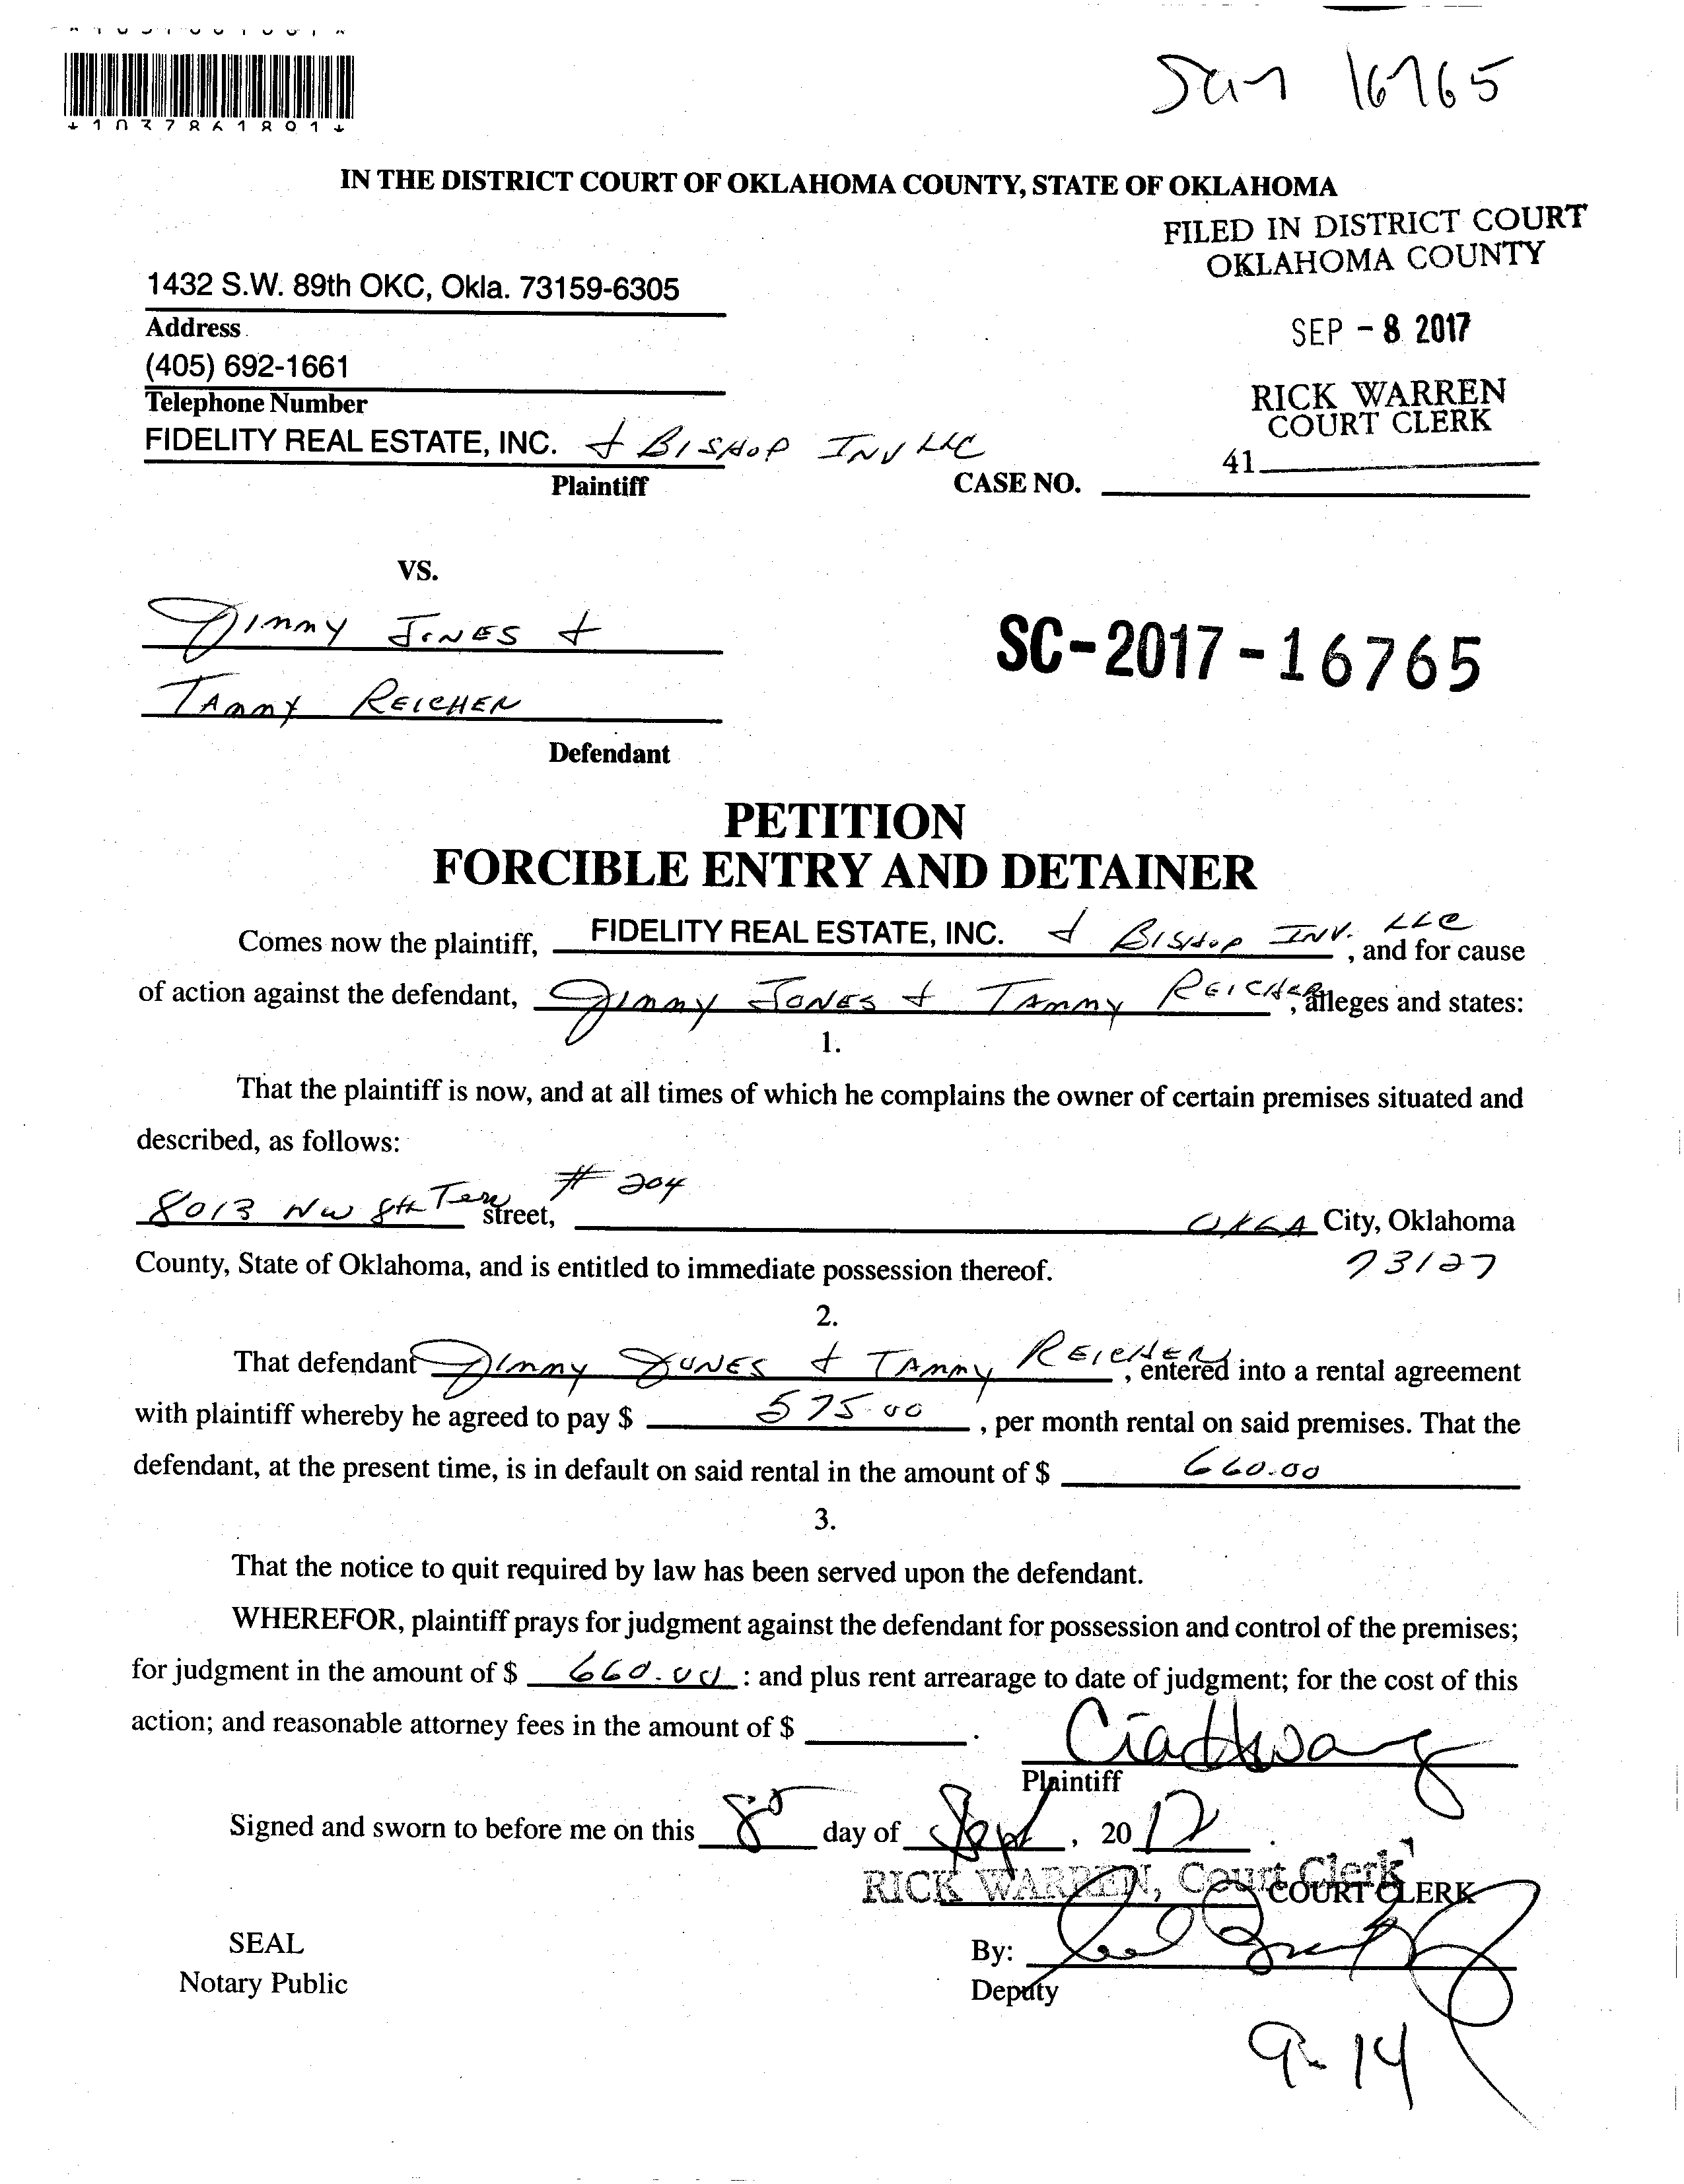 16765
*1037861891*
IN THE DISTRICT COURT OF OKLAHOMA COUNTY, STATE OF OKLAHOMA
FILED IN DISTRICT COURT
OKLAHOMA COUNTY
1432 S.W. 89th OKC, Okla. 73159-6305
Address
SEP - 8 2017
(405) 692-1661
Telephone Number
RICK WARREN
COURT CLERK
FIDELITY REAL ESTATE, INC. & BISHOP INV LLC
41
Plaintiff
CASE NO.
VS.
Jimmy JONES &
SC-2017-16765
TAMMY REICHER
Defendant
PETITION
FORCIBLE ENTRY AND DETAINER
Comes now the plaintiff, FIDELITY REAL ESTATE, INC. & BISHOP INV. LLC, and for cause
of action against the defendant, Jimmy JONES & TAMMY REICHER, alleges and states:
1.
That the plaintiff is now, and at all times of which he complains the owner of certain premises situated and
described, as follows:
8013 NW 8th Terr street, # 204 OKLA City, Oklahoma
County, State of Oklahoma, and is entitled to immediate possession thereof. 73127
2.
That defendant Jimmy JONES & TAMMY REICHER, entered into a rental agreement
with plaintiff whereby he agreed to pay $ 575.00, per month rental on said premises. That the
defendant, at the present time, is in default on said rental in the amount of $ 660.00
3.
That the notice to quit required by law has been served upon the defendant.
WHEREFOR, plaintiff prays for judgment against the defendant for possession and control of the premises;
for judgment in the amount of $ 660.00 : and plus rent arrearage to date of judgment; for the cost of this
action; and reasonable attorney fees in the amount of $ .
Plaintiff
Signed and sworn to before me on this 8 day of Sept, 2017.
RICK WARREN, Court Clerk
COURT CLERK
SEAL
By:
Notary Public
Deputy
9-14